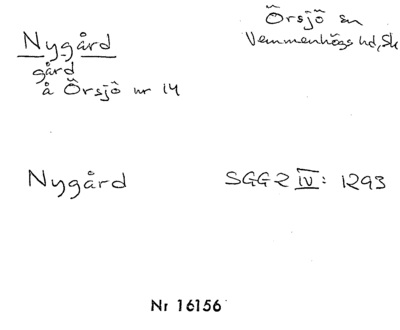 Örsjö sn
Vemmenhögs hd, Sk
Nygård
gård
å Örsjö nr 14
Nygård
SGG2 IV: 1293
Nr 16156